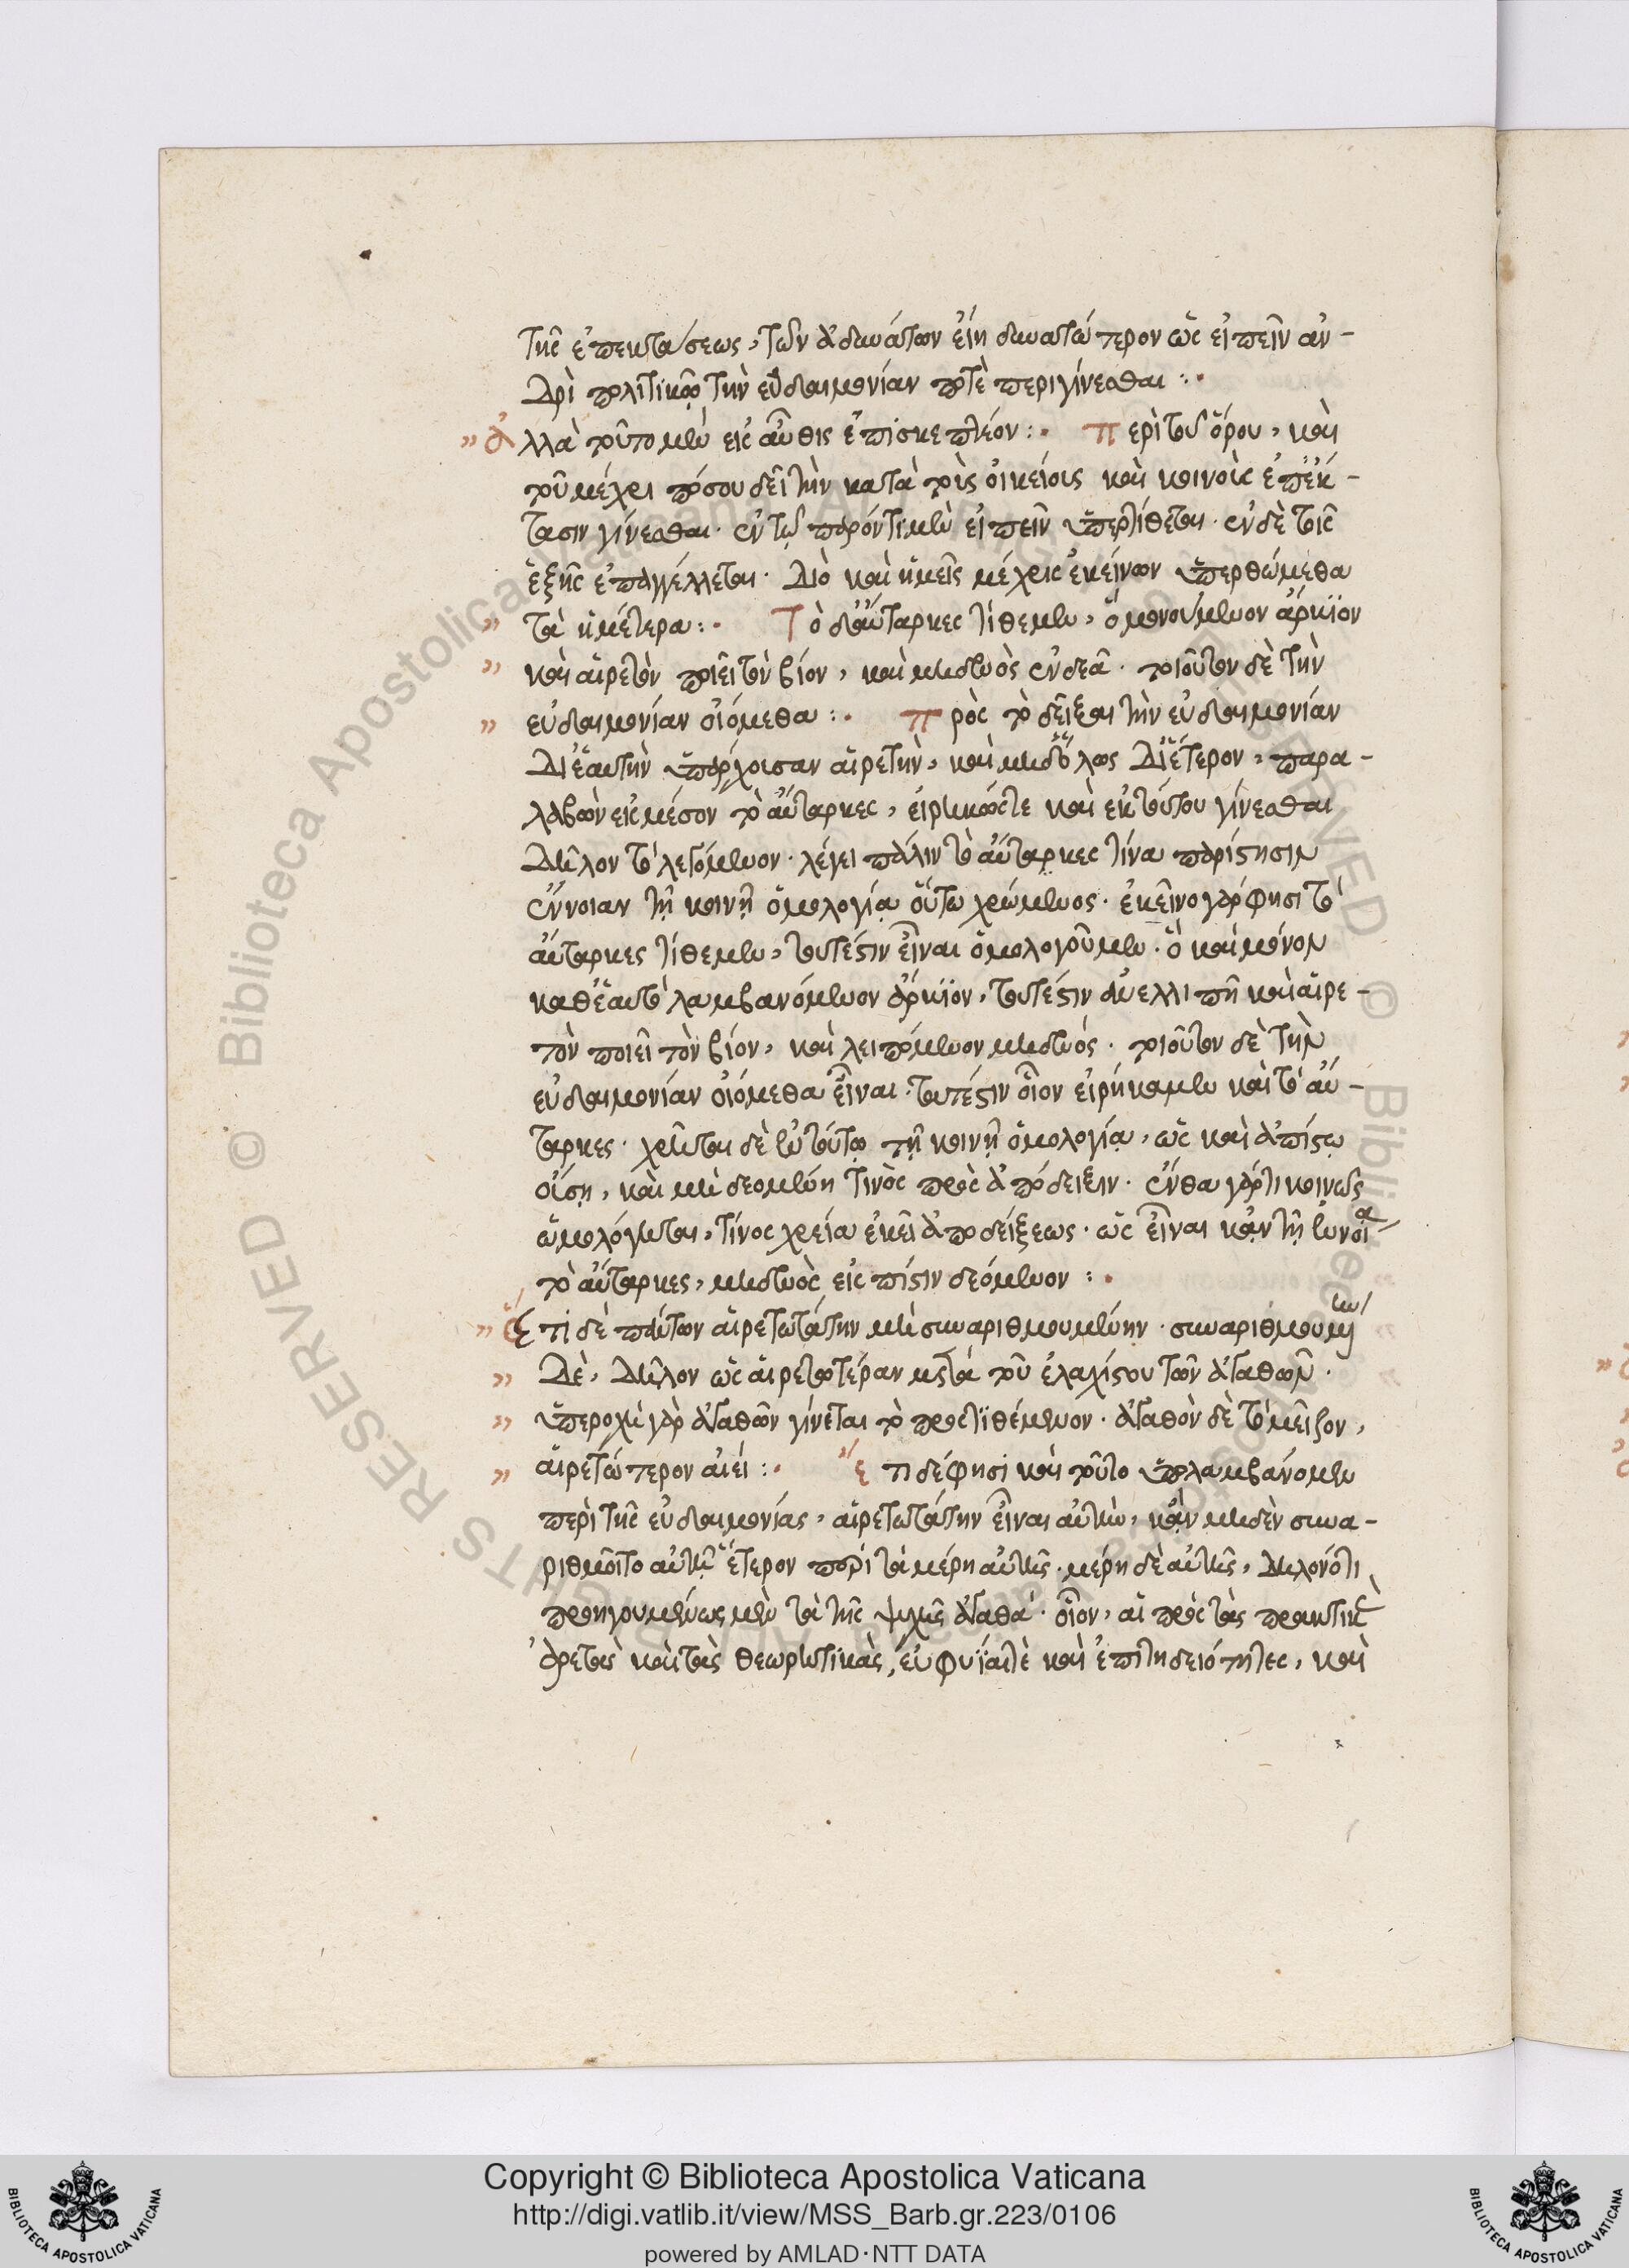 τῆς ἐπεκτάσεως, τῶν ἀδυνάτων εἴη δυνατώτερον ὡς εἰπεῖν ἀν-
δρὶ πολιτικῷ τὴν εὐδαιμονίαν ποτὲ περιγίνεσθαι :·
" ἀλλὰ τοῦτο μὲν εἰς αὖθις ἐπισκεπτέον :· περὶ τοῦ ὅρου, καὶ
τοῦ μέχρι πόσου δεῖ τὴν κατὰ τοῖς οἰκείοις καὶ κοινοῖς ἐπέκ-
τασιν γίνεσθαι· ἐν τῷ παρόντι μὲν εἰπεῖν ὑπερτίθεται· ἐν δὲ τοῖς
ἑξῆς ἐπαγγέλλεται· διὸ καὶ ἡμεῖς μέχρις ἐκείνων ὑπερθώμεθα
" τὰ ἡμέτερα :· Τὸ δ' αὔταρκες τίθεμεν, ὃ μονούμενον ἄρκιον
" καὶ αἱρετὸν ποιεῖ τὸν βίον, καὶ μηδενὸς ἐνδεᾶ· τοιοῦτον δὲ τὴν
" εὐδαιμονίαν οἰόμεθα :· πρὸς τὸ δεῖξαι τὴν εὐδαιμονίαν
δι' ἑαυτὴν ὑπάρχουσαν αἱρετὴν, καὶ μηδόλως δι' ἕτερον, παρα-
λαβὼν εἰς μέσον τὸ αὔταρκες, εἰρηκώς τε καὶ ἐκ τούτου γίνεσθαι
δῆλον τὸ λεγόμενον· λέγει πάλιν τὸ αὔταρκες τίνα παρίστησιν
ἔννοιαν τῇ κοινῇ ὁμολογίᾳ οὕτω χρώμενος· ἐκεῖνο γάρ φησι τὸ
αὔταρκες τίθεμεν, τουτέστιν εἶναι ὁμολογοῦμεν· ὃ καὶ μόνον
καθ' ἑαυτὸ λαμβανόμενον ἄρκιον, τουτέστιν ἀνελλιπῆ καὶ αἱρε-
τὸν ποιεῖ τὸν βίον, καὶ λειπόμενον μηδενός· τοιοῦτον δὲ τὴν
εὐδαιμονίαν οἰόμεθα εἶναι· τουτέστιν οἷον εἰρήκαμεν καὶ τὸ αὔ-
ταρκες· χρῆται δὲ ἐν τούτῳ τῇ κοινῇ ὁμολογίᾳ, ὡς καὶ ἀπίστῳ
οὔσῃ, καὶ μὴ δεομένῃ τινὸς πρὸς ἀπόδειξιν· ἔνθα γάρ τι κοινῶς
ὡμολόγηται, τίνος χρεία ἐκεῖ ἀποδείξεως· ὡς εἶναι κἀν τῇ ἐννοίᾳ
τὸ αὔταρκες, μηδενὸς εἰς πίστιν δεόμενον :·
" ἔτι δὲ πάντων αἱρετωτάτην μὴ συναριθμουμένην· συναριθμουμένην
" δὲ, δῆλον ὡς αἱρετωτέραν μετὰ τοῦ ἐλαχίστου τῶν ἀγαθῶν·
" ὑπεροχὴ γὰρ ἀγαθῶν γίνεται τὸ προστιθέμενον· ἀγαθὸν δὲ τὸ μεῖζον,
" αἱρετώτερον αἰεί :· ἔτι δέ φησι καὶ τοῦτο ὑπολαμβάνομεν
περὶ τῆς εὐδαιμονίας, αἱρετωτάτην εἶναι αὐτὴν, κἂν μηδὲν συνα-
ριθμοῖτο αὐτῇ ἕτερον παρὰ τὰ μέρη αὐτῆς· μέρη δὲ αὐτῆς, δηλονότι
προηγουμένως μὲν τὰ τῆς ψυχῆς ἀγαθά· οἷον, αἱ πρὸς τὰς πρακτικὰς
ἀρετὰς καὶ τὰς θεωρητικὰς, εὐφυΐαι τὲ καὶ ἐπιτηδειότητες, καὶ
Copyright © Biblioteca Apostolica Vaticana
http://digi.vatlib.it/view/MSS_Barb.gr.223/0106
powered by AMLAD·NTT DATA
BIBLIOTECA APOSTOLICA VATICANA
BIBLIOTECA APOSTOLICA VATICANA